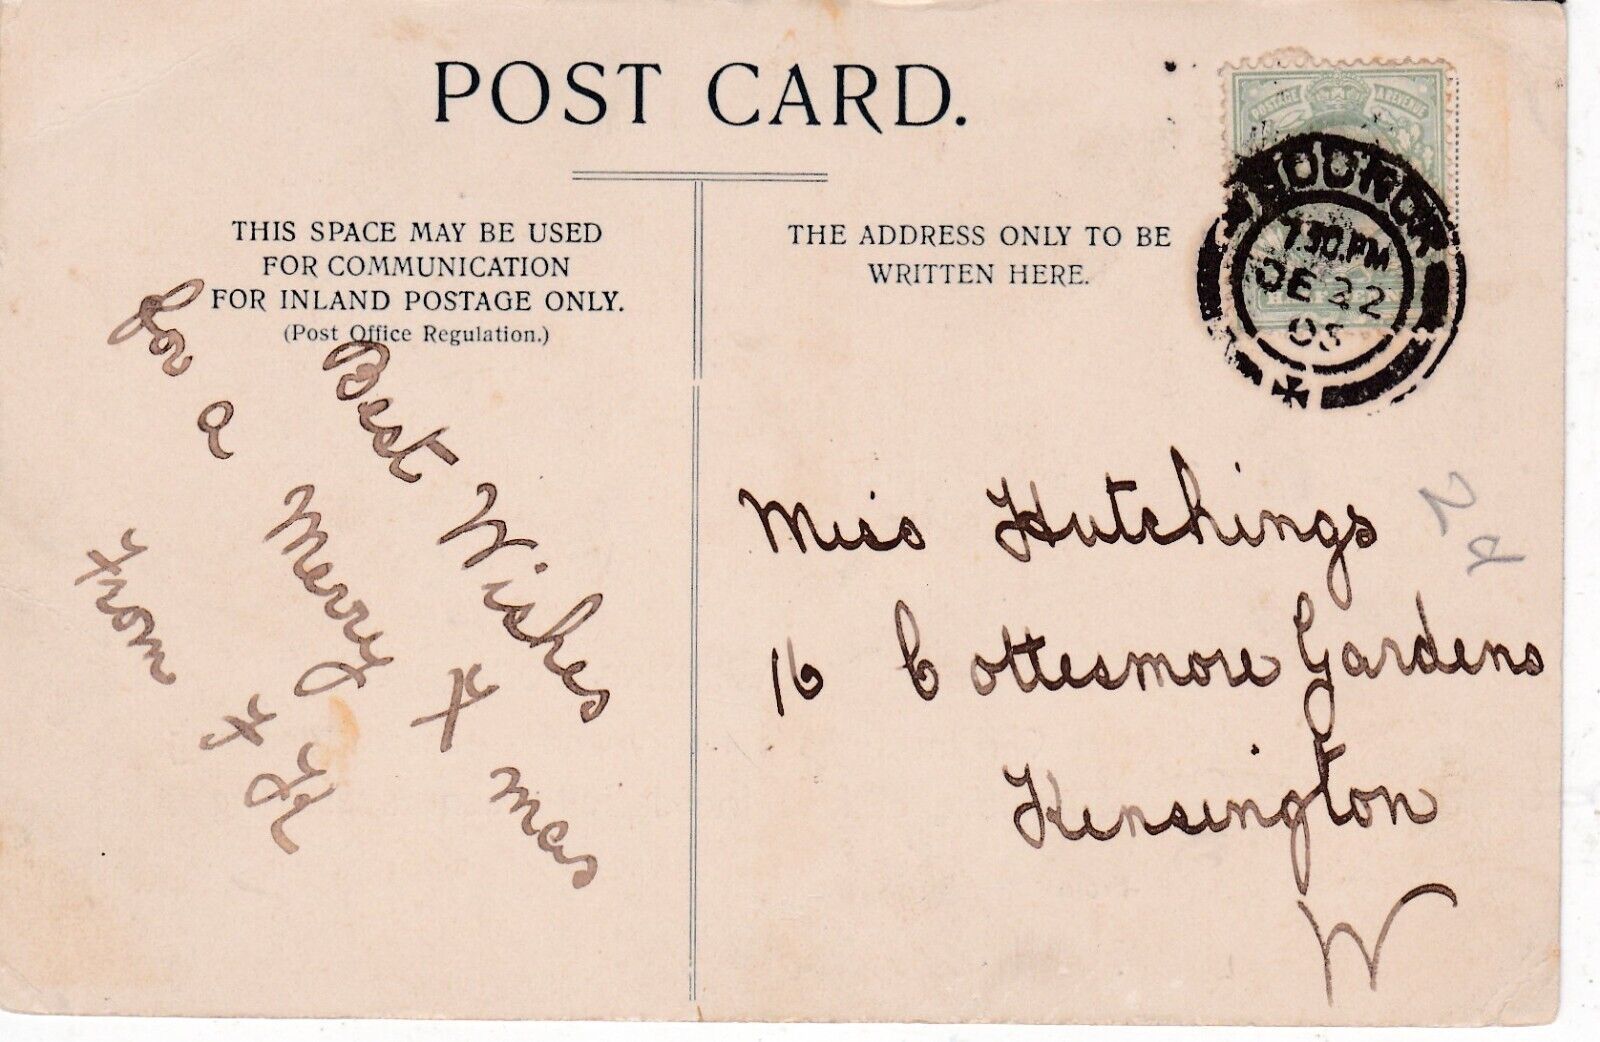 POST CARD.
THIS SPACE MAY BE USED
FOR COMMUNICATION
FOR INLAND POSTAGE ONLY.
(Post Office Regulation.)
Best Wishes
for a Merry X mas
from
THE ADDRESS ONLY TO BE
WRITTEN HERE.
POSTAGE & REVENUE
7.30.PM
DE 22
Miss Hutchings
16 Cottesmore Gardens
Kensington
W
2d